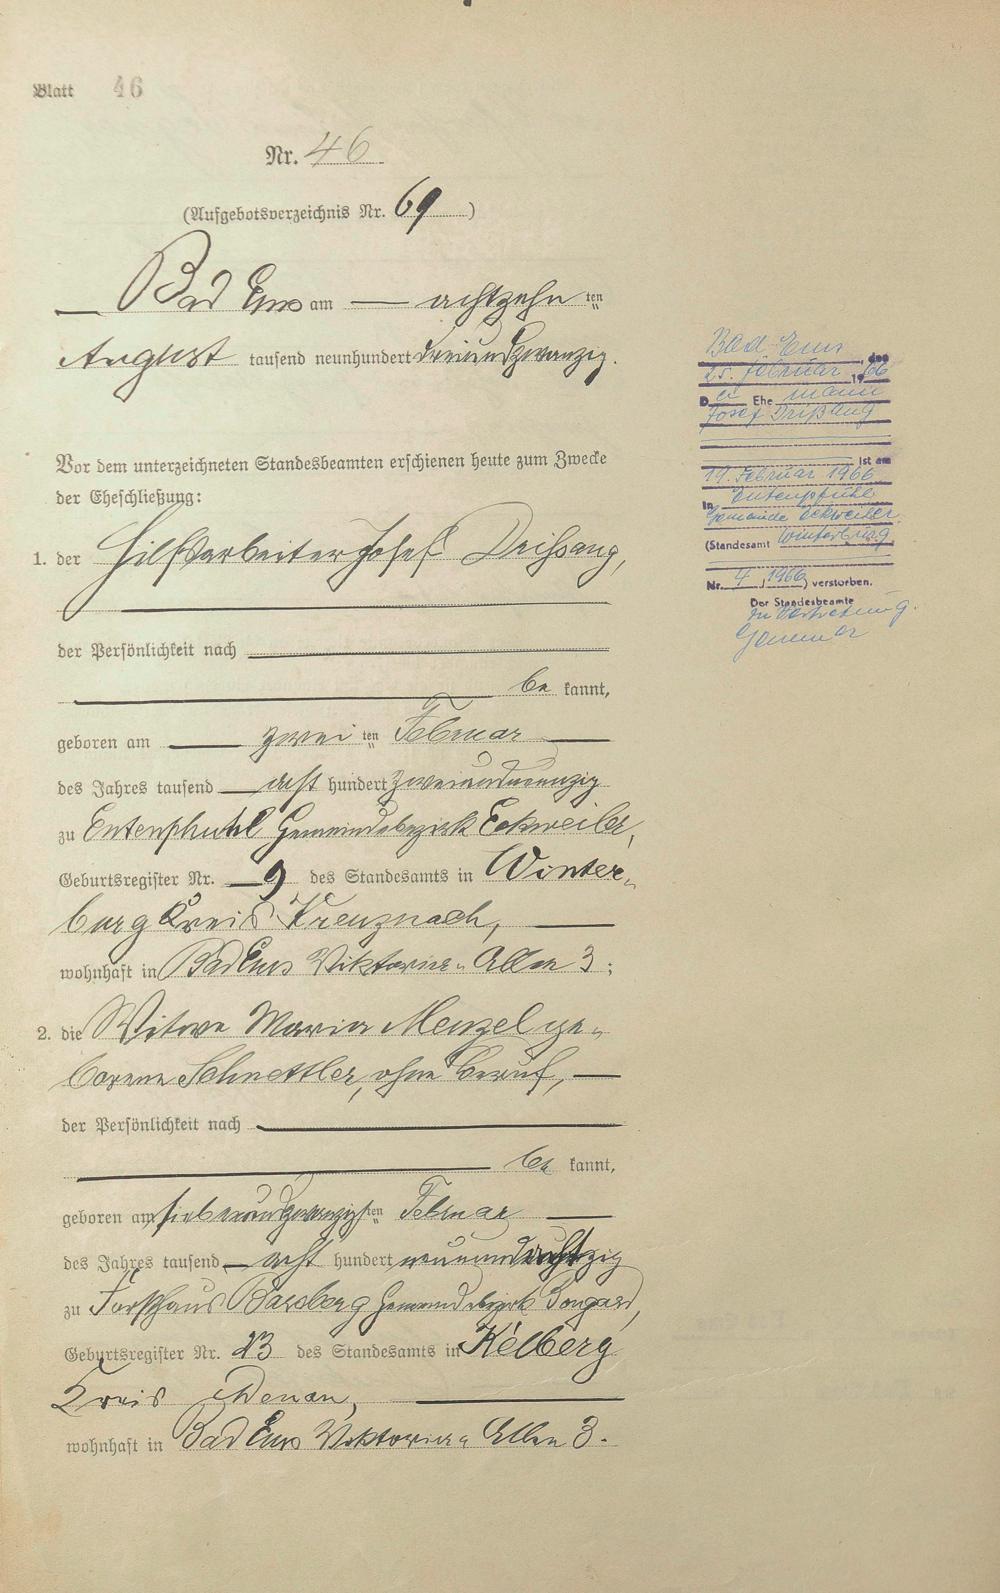 Blatt 46
Nr. 46
(Aufgebotsverzeichnis Nr. 69)
Bad Ems am achtzehnten
August tausend neunhundert dreiundzwanzig.
Vor dem unterzeichneten Standesbeamten erschienen heute zum Zwecke
der Eheschließung:
1. der Hilfsarbeiter Josef Drißang,
der Persönlichkeit nach
be kannt,
geboren am zweiten Februar
des Jahres tausend acht hundert zweiundneunzig
zu Entenpfuhl Gemeindebezirk Eckweiler,
Geburtsregister Nr. 9 des Standesamts in Winter-
burg Kreis Kreuznach,
wohnhaft in Bad Ems Viktoria-Allee 3;
2. die Witwe Maria Menzel ge-
borene Schnettler, ohne Beruf,
der Persönlichkeit nach
be kannt,
geboren am siebenundzwanzigsten Februar
des Jahres tausend acht hundert neunundachtzig
zu Forsthaus Barsberg Gemeindebezirk Bongard,
Geburtsregister Nr. 23 des Standesamts in Kelberg
Kreis Adenau,
wohnhaft in Bad Ems Viktoria-Allee 3.
Bad-Ems, den
25. Februar 1966
Der Ehe mann
Josef Drißang
ist am
19. Februar 1966
in Entenpfuhl
Gemeinde Eckweiler
(Standesamt Winterburg
Nr. 4, 1966) verstorben.
Der Standesbeamte
In Vertretung.